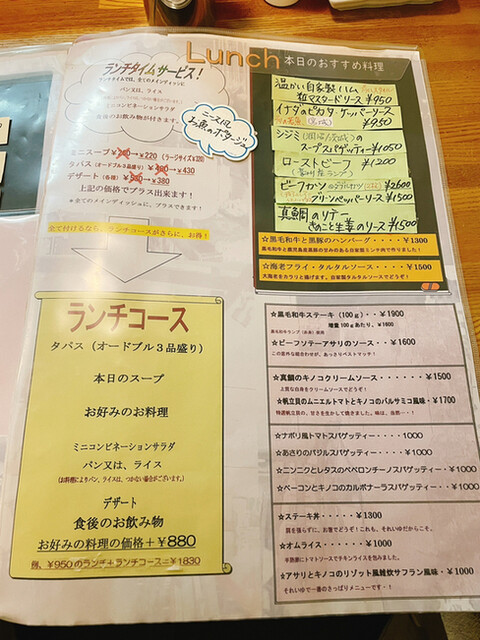 Lunch 本日のおすすめ料理
ランチタイムサービス!
ランチタイムでは、全てのメインディッシュに
パン又は、ライス
ミニコンビネーションサラダ
食後のお飲み物が付きます。
ニース風
お魚のポタージュ
ミニスープ → ¥220 (ラージサイズ¥320)
タパス (オードブル3品盛り) → ¥430
デザート (各種) → ¥380
上記の価格でプラス出来ます!
*全てのメインディッシュに、プラスできます!
全て付けるなら、ランチコースがさらに、お得!
ランチコース
タパス (オードブル3品盛り)
本日のスープ
お好みのお料理
ミニコンビネーションサラダ
パン又は、ライス
(お料理によりパン、ライスは、つかない場合がございます。)
デザート
食後のお飲み物
お好みの料理の価格+¥880
例、¥950のランチ+ランチコース=¥1830
温かい自家製ハム
粒マスタードソース ¥950
イナダのピカタ・ケッパーソース
¥950
シジミ
スープスパゲッティー ¥1050
ローストビーフ ¥1200
ビーフカツ ¥2600
グリーンペッパーソース ¥1500
真鯛のソテー
きのこと生姜のソース ¥1500
☆黒毛和牛と黒豚のハンバーグ・・・・・¥1300
黒毛和牛と鹿児島産黒豚の甘みのある自家製ミンチ肉で作りました!
☆海老フライ・タルタルソース・・・・・¥1500
大海老をカラリと揚げます。自家製タルタルソースでどうぞ!
☆黒毛和牛ステーキ (100g)・・・¥1900
黒毛和牛ランプ (赤身) 使用 増量100gあたり、¥1600
☆ビーフソテーアサリのソース・・・¥1600
この意外な組合わせが、あっさりベストマッチ!
☆真鯛のキノコクリームソース・・・・・・¥1500
上質な白身をクリームソースでどうぞ!
☆帆立貝のムニエルトマトとキノコのバルサミコ風味・¥1700
特選帆立貝の、甘さを生かして焼きました。味は、当然・・・!
☆ナポリ風トマトスパゲッティー・・・・・1000
☆あさりのバジルスパゲッティー・・・・・¥1000
☆ニンニクとレタスのペペロンチーノスパゲッティー・・¥1000
☆ベーコンとキノコのカルボナーラスパゲッティー・・・¥1000
☆ステーキ丼・・・・・¥1300
肩を張らずに、お箸でどうぞ!これも、それいゆだからこそ。
☆オムライス・・・・・¥1000
半熟卵にトマトソースでチキンライスを包みました。
☆アサリとキノコのリゾット風雑炊サフラン風味・¥1000
それいゆで一番のさっぱりメニューです!